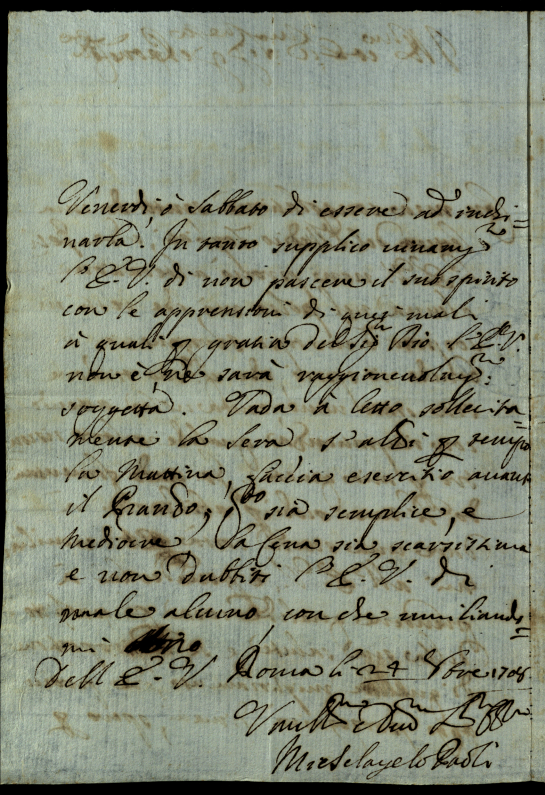 Venerdi, ò Sabbato di essere ad inchi=
narla. In tanto supplico vivam.te
l'E. V. di non pascere il suo spirito
con le apprensioni di quei mali
à quali p gratia del Sig.r Dio l'E. V.
non è, ne sarà raggionevolm.te
soggetta. Vada à letto sollecita=
mente la sera, s'alzi p tempo
la Mattina, faccia esercitio avanti
il Prando, q.to sia semplice, e
mediocre, la Cena sia scarsissima
e non dubbiti l'E. V. di
male alcuno, con che umiliando=
mi
Dell'E. V. Roma li 24 1708
Umill.mo e Dev.mo
Michelangelo Paoli